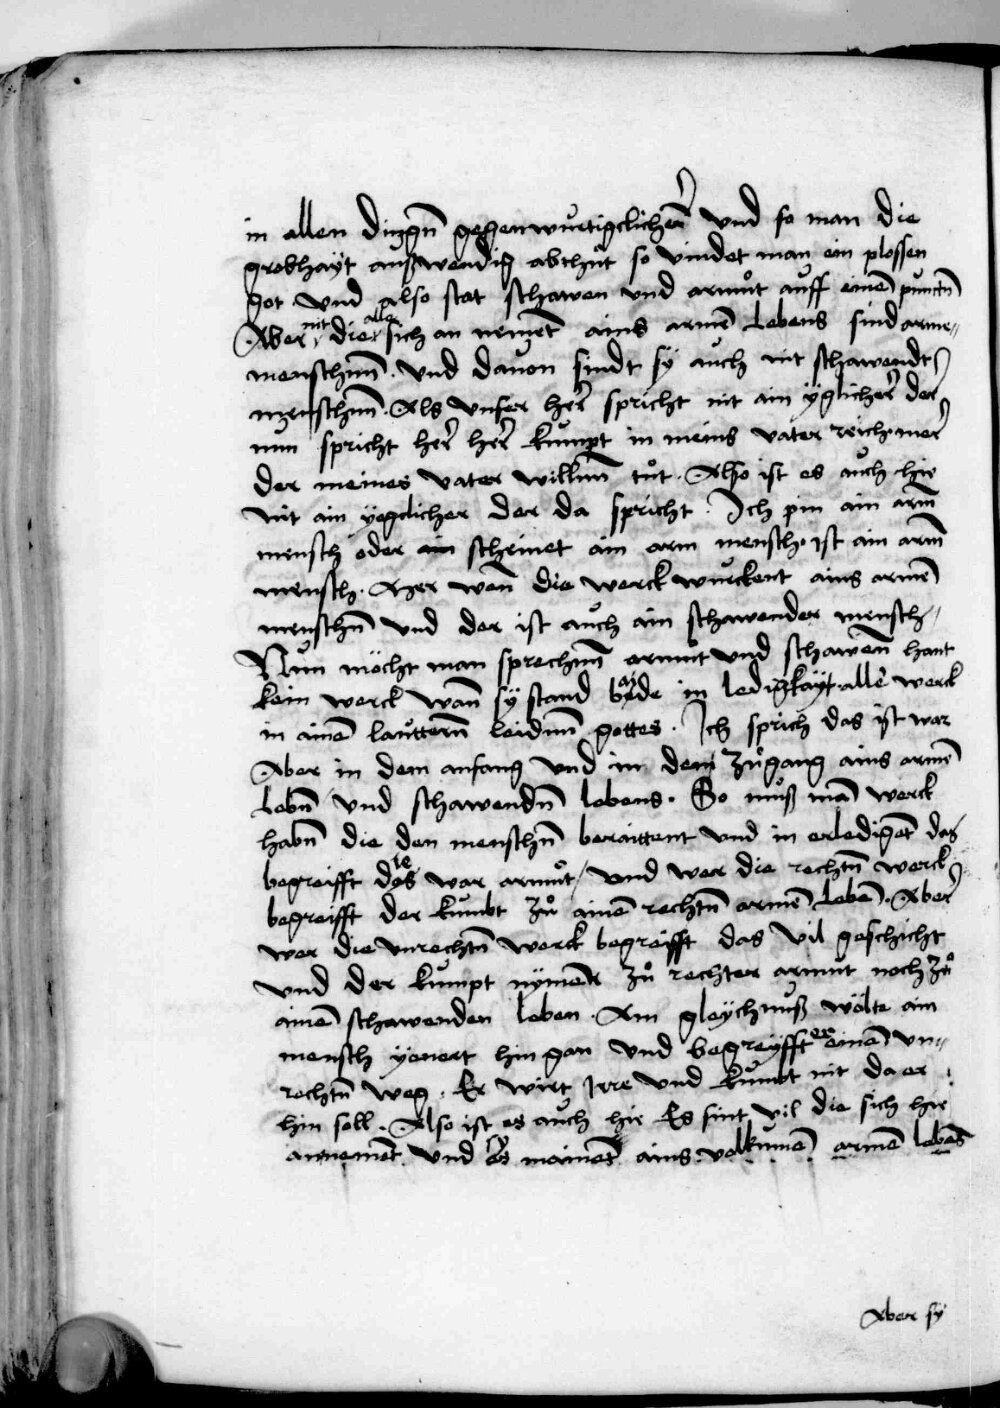 in allen dingñ gegenwurtigclicheñ vnd so man die
grobhayt außwendig abthut so vindet man ein plossen
got vnd also stat schawen vnd armůt auff einē punctñ
Aber nit die alle sich an nemēt ains armē lebens sind arme„
menschnn̄ . vnd dauon sindt sÿ auch nit schawendt
menschnn̄ . Als vnser her̃ spricht nit ain ÿglicher der
nun spricht her̃ her̃ kumpt in meins vater reich mer
der meines vater willnn̄ tůt . Also ist es auch hie
nit ain ÿegclicher der da spricht . Ich pin ain arm̄
mensch oder ain scheinet ain arm mensch . ist ain arm̄
mensch . Mer wen̄ die werck wurckent ains armē
menschñ vnd der ist auch ain schawender mensch„
Nun möcht man sprechnn̄ armut vnd schawen̄ hant
kein werck wan̄ sÿ stand bayde in ledigkayt aller werck
in ainē lauttern̄ leidnn̄ gottes . Ich sprich das ist war
Aber in dem anfang vnd in dem zůgang ains armē
lebñ vnd schawendñ lebens . So můß mā werck
habñ die den menschñ beraittent vnd in erledigēt das
begreifft die war armůt / vnd wer die rechtñ werck
begreifft der kumbt zů ainē rechtñ armē lebē . Aber
wer die vnrechtñ werck begreifft das vil geschicht
vnd der kumpt nÿmer zů rechter armůt noch zů
ainē schawenden leben . Am gleychnuß wölte ain
mensch yenert hin gan vnd begreyfft er einē vn„
rechtñ weg . Er wirt Irre vnd kumbt nit da er
hin soll . Also ist es auch hie Es sint vil die sich hie
annemēt vnd sÿ mainēt ains volkumē armē lebēs
Aber sÿ